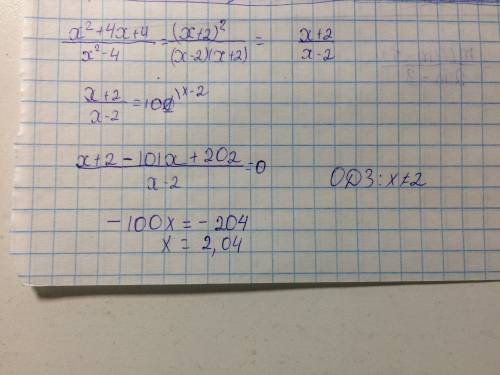 x²+4x+4/x²-4 = (x+2)²/(x-2)(x+2) = x+2/x-2
x+2/x-2 = 101 \x-2
x+2-101x+202/x-2 = 0
ОДЗ: x≠2
-100x = -204
x = 2,04